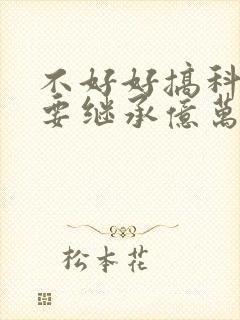 不好好搞科
要继承億萬
松本花